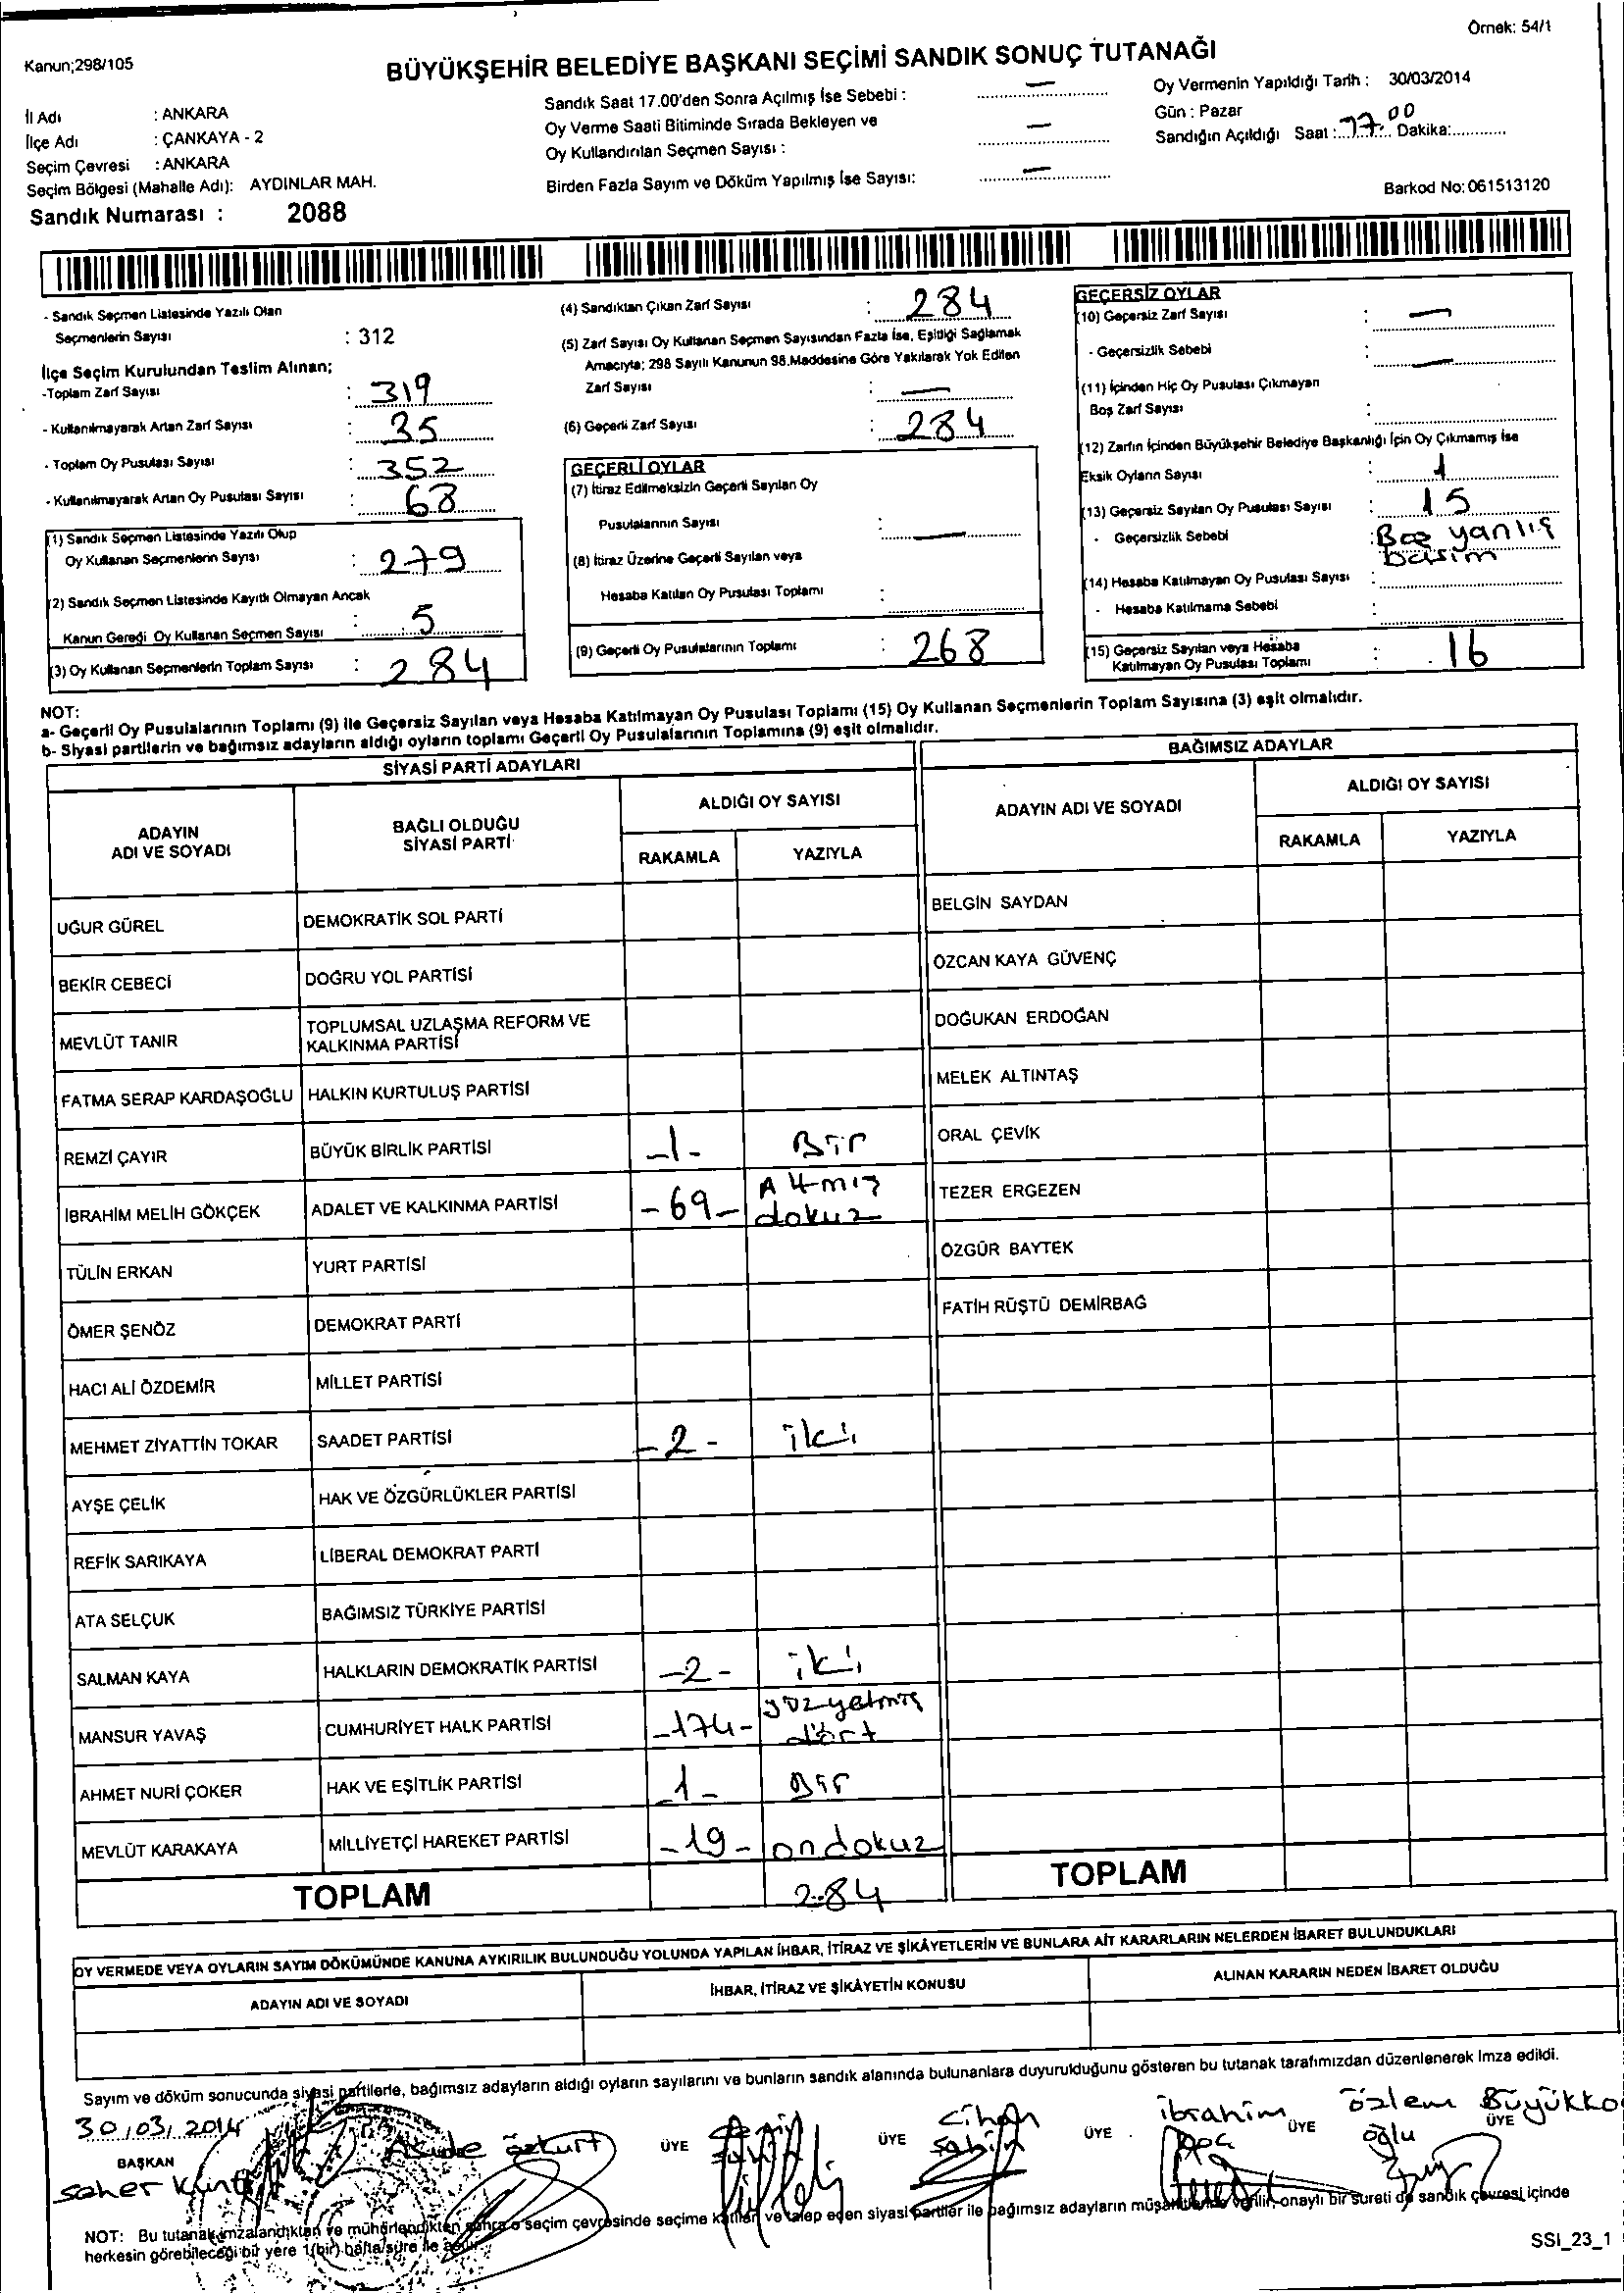 Örnek: 54/1
Kanun;298/105
BÜYÜKŞEHİR BELEDİYE BAŞKANI SEÇİMİ SANDIK SONUÇ TUTANAĞI
İl Adı : ANKARA
İlçe Adı : ÇANKAYA - 2
Seçim Çevresi : ANKARA
Seçim Bölgesi (Mahalle Adı): AYDINLAR MAH.
Sandık Numarası : 2088
Sandık Saat 17.00'den Sonra Açılmış İse Sebebi : —
Oy Verme Saati Bitiminde Sırada Bekleyen ve
Oy Kullandırılan Seçmen Sayısı : —
Birden Fazla Sayım ve Döküm Yapılmış İse Sayısı: —
Oy Vermenin Yapıldığı Tarih : 30/03/2014
Gün : Pazar
Sandığın Açıldığı Saat : 17. 00 Dakika:............
Barkod No: 061513120
- Sandık Seçmen Listesinde Yazılı Olan
Seçmenlerin Sayısı : 312
İlçe Seçim Kurulundan Teslim Alınan;
-Toplam Zarf Sayısı : 319
- Kullanılmayarak Artan Zarf Sayısı : 35
- Toplam Oy Pusulası Sayısı : 352
- Kullanılmayarak Artan Oy Pusulası Sayısı : 68
(1) Sandık Seçmen Listesinde Yazılı Olup
Oy Kullanan Seçmenlerin Sayısı : 279
(2) Sandık Seçmen Listesinde Kayıtlı Olmayan Ancak
Kanun Gereği Oy Kullanan Seçmen Sayısı : 5
(3) Oy Kullanan Seçmenlerin Toplam Sayısı : 284
(4) Sandıktan Çıkan Zarf Sayısı : 284
(5) Zarf Sayısı Oy Kullanan Seçmen Sayısından Fazla İse, Eşitliği Sağlamak
Amacıyla; 298 Sayılı Kanunun 98.Maddesine Göre Yakılarak Yok Edilen
Zarf Sayısı : —
(6) Geçerli Zarf Sayısı : 284
GEÇERLİ OYLAR
(7) İtiraz Edilmeksizin Geçerli Sayılan Oy
Pusulalarının Sayısı : —
(8) İtiraz Üzerine Geçerli Sayılan veya
Hesaba Katılan Oy Pusulası Toplamı :
(9) Geçerli Oy Pusulalarının Toplamı : 268
GEÇERSİZ OYLAR
(10) Geçersiz Zarf Sayısı : —
- Geçersizlik Sebebi : —
(11) İçinden Hiç Oy Pusulası Çıkmayan
Boş Zarf Sayısı :
(12) Zarfın İçinden Büyükşehir Belediye Başkanlığı İçin Oy Çıkmamış İse
Eksik Oyların Sayısı : 1
(13) Geçersiz Sayılan Oy Pusulası Sayısı : 15
- Geçersizlik Sebebi : Boş yanlış
basım
(14) Hesaba Katılmayan Oy Pusulası Sayısı :
- Hesaba Katılmama Sebebi :
(15) Geçersiz Sayılan veya Hesaba
Katılmayan Oy Pusulası Toplamı : 16
NOT:
a- Geçerli Oy Pusulalarının Toplamı (9) ile Geçersiz Sayılan veya Hesaba Katılmayan Oy Pusulası Toplamı (15) Oy Kullanan Seçmenlerin Toplam Sayısına (3) eşit olmalıdır.
b- Siyasi partilerin ve bağımsız adayların aldığı oyların toplamı Geçerli Oy Pusulalarının Toplamına (9) eşit olmalıdır.
SİYASİ PARTİ ADAYLARI
ADAYIN ADI VE SOYADI BAĞLI OLDUĞU SİYASİ PARTİ ALDIĞI OY SAYISI
RAKAMLA YAZIYLA
UĞUR GÜREL DEMOKRATİK SOL PARTİ
BEKİR CEBECİ DOĞRU YOL PARTİSİ
MEVLÜT TANIR TOPLUMSAL UZLAŞMA REFORM VE
KALKINMA PARTİSİ
FATMA SERAP KARDAŞOĞLU HALKIN KURTULUŞ PARTİSİ
REMZİ ÇAYIR BÜYÜK BİRLİK PARTİSİ -1- Bir
İBRAHİM MELİH GÖKÇEK ADALET VE KALKINMA PARTİSİ -69- Altmış
dokuz
TÜLİN ERKAN YURT PARTİSİ
ÖMER ŞENÖZ DEMOKRAT PARTİ
HACI ALİ ÖZDEMİR MİLLET PARTİSİ
MEHMET ZİYATTİN TOKAR SAADET PARTİSİ -2- iki
AYŞE ÇELİK HAK VE ÖZGÜRLÜKLER PARTİSİ
REFİK SARIKAYA LİBERAL DEMOKRAT PARTİ
ATA SELÇUK BAĞIMSIZ TÜRKİYE PARTİSİ
SALMAN KAYA HALKLARIN DEMOKRATİK PARTİSİ -2- iki
MANSUR YAVAŞ CUMHURİYET HALK PARTİSİ -174- yüzyetmiş
dört
AHMET NURİ ÇOKER HAK VE EŞİTLİK PARTİSİ -1- Bir
MEVLÜT KARAKAYA MİLLİYETÇİ HAREKET PARTİSİ -19- ondokuz
TOPLAM 284
BAĞIMSIZ ADAYLAR
ADAYIN ADI VE SOYADI ALDIĞI OY SAYISI
RAKAMLA YAZIYLA
BELGİN SAYDAN
ÖZCAN KAYA GÜVENÇ
DOĞUKAN ERDOĞAN
MELEK ALTINTAŞ
ORAL ÇEVİK
TEZER ERGEZEN
ÖZGÜR BAYTEK
FATİH RÜŞTÜ DEMİRBAĞ
TOPLAM
OY VERMEDE VEYA OYLARIN SAYIM DÖKÜMÜNDE KANUNA AYKIRILIK BULUNDUĞU YOLUNDA YAPILAN İHBAR, İTİRAZ VE ŞİKÂYETLERİN VE BUNLARA AİT KARARLARIN NELERDEN İBARET BULUNDUKLARI
ADAYIN ADI VE SOYADI İHBAR, İTİRAZ VE ŞİKÂYETİN KONUSU ALINAN KARARIN NEDEN İBARET OLDUĞU
Sayım ve döküm sonucunda siyasi partilerle, bağımsız adayların aldığı oyların sayılarını ve bunların sandık alanında bulunanlara duyurulduğunu gösteren bu tutanak tarafımızdan düzenlenerek imza edildi.
30.03.2014
BAŞKAN ÜYE ÜYE ÜYE ÜYE ÜYE
özkurt Cihan Şahin ibrahim özlem Büyükko
oğlu
NOT: Bu tutanak imzalandıktan ve mühürlendikten sonra o seçim çevresinde seçime katılan ve talep eden siyasi partiler ile bağımsız adayların müşahitlerine verilir, onaylı bir sureti de sandık çevresi içinde
herkesin görebileceği bir yere 1(bir) hafta süre ile asılır.
SSI_23_1